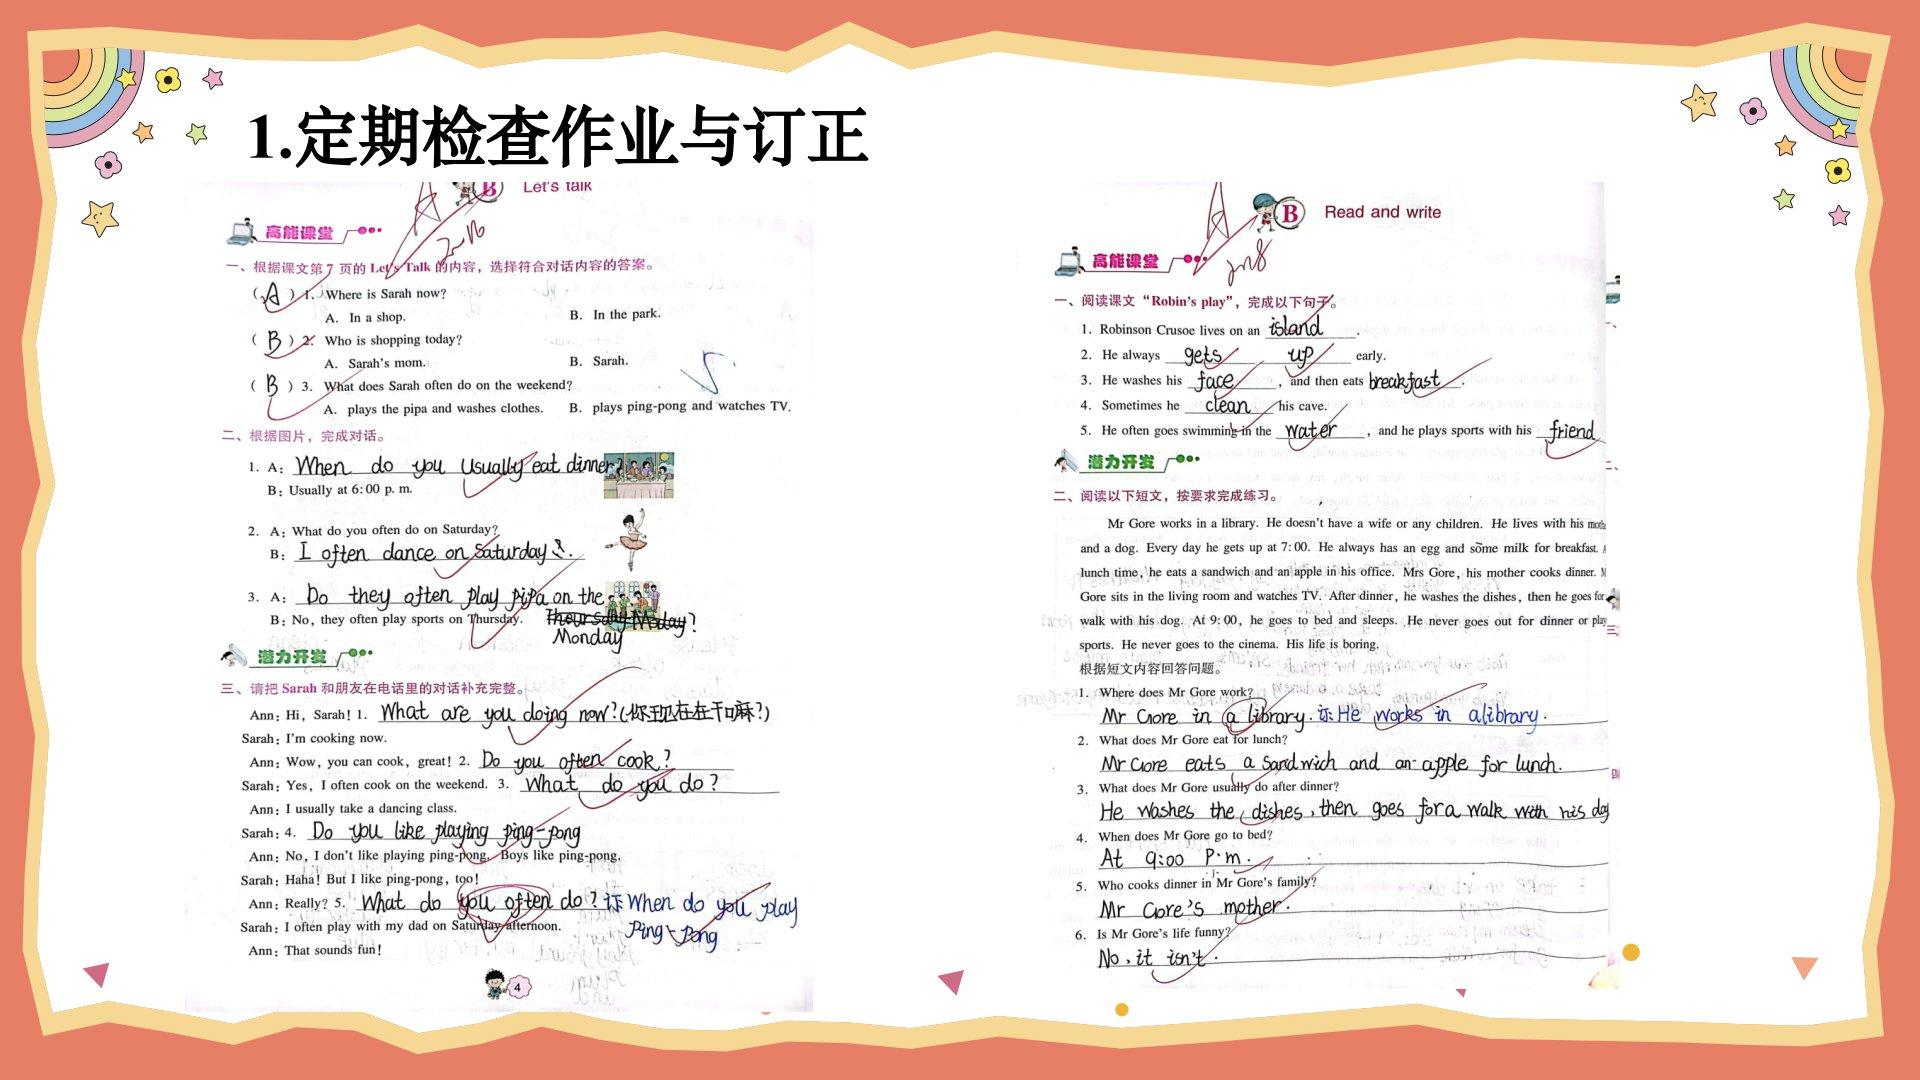 1.定期检查作业与订正
B Let's talk
高能课堂
一、根据课文第7页的 Let's Talk 的内容，选择符合对话内容的答案。
( A ) 1. Where is Sarah now?
A. In a shop. B. In the park.
( B ) 2. Who is shopping today?
A. Sarah's mom. B. Sarah.
( B ) 3. What does Sarah often do on the weekend?
A. plays the pipa and washes clothes. B. plays ping-pong and watches TV.
二、根据图片，完成对话。
1. A: When do you usually eat dinner?
B: Usually at 6:00 p. m.
2. A: What do you often do on Saturday?
B: I often dance on Saturday.
3. A: Do they often play pipa on the
B: No, they often play sports on Thursday.
Monday?
潜力开发
三、请把 Sarah 和朋友在电话里的对话补充完整。
Ann: Hi, Sarah! 1. What are you doing now?(你现在在干嘛?)
Sarah: I'm cooking now.
Ann: Wow, you can cook, great! 2. Do you often cook?
Sarah: Yes, I often cook on the weekend. 3. What do you do?
Ann: I usually take a dancing class.
Sarah: 4. Do you like playing ping-pong
Ann: No, I don't like playing ping-pong. Boys like ping-pong.
Sarah: Haha! But I like ping-pong, too!
Ann: Really? 5. What do you often do? 订: When do you play
ping-pong
Sarah: I often play with my dad on Saturday afternoon.
Ann: That sounds fun!
4
A
B Read and write
高能课堂
一、阅读课文“Robin's play”，完成以下句子。
1. Robinson Crusoe lives on an island.
2. He always gets up early.
3. He washes his face, and then eats breakfast.
4. Sometimes he clean his cave.
5. He often goes swimming in the water, and he plays sports with his friend
潜力开发
二、阅读以下短文，按要求完成练习。
Mr Gore works in a library. He doesn't have a wife or any children. He lives with his
and a dog. Every day he gets up at 7:00. He always has an egg and some milk for breakfast.
lunch time, he eats a sandwich and an apple in his office. Mrs Gore, his mother cooks dinner.
Gore sits in the living room and watches TV. After dinner, he washes the dishes, then he goes for
walk with his dog. At 9:00, he goes to bed and sleeps. He never goes out for dinner or play
sports. He never goes to the cinema. His life is boring.
根据短文内容回答问题。
1. Where does Mr Gore work?
Mr Gore in a library. 订: He works in a library.
2. What does Mr Gore eat for lunch?
Mr Gore eats a sandwich and an apple for lunch.
3. What does Mr Gore usually do after dinner?
He washes the dishes, then goes for a walk with his dog
4. When does Mr Gore go to bed?
At 9:00 p.m.
5. Who cooks dinner in Mr Gore's family?
Mr Gore's mother.
6. Is Mr Gore's life funny?
No, it isn't.